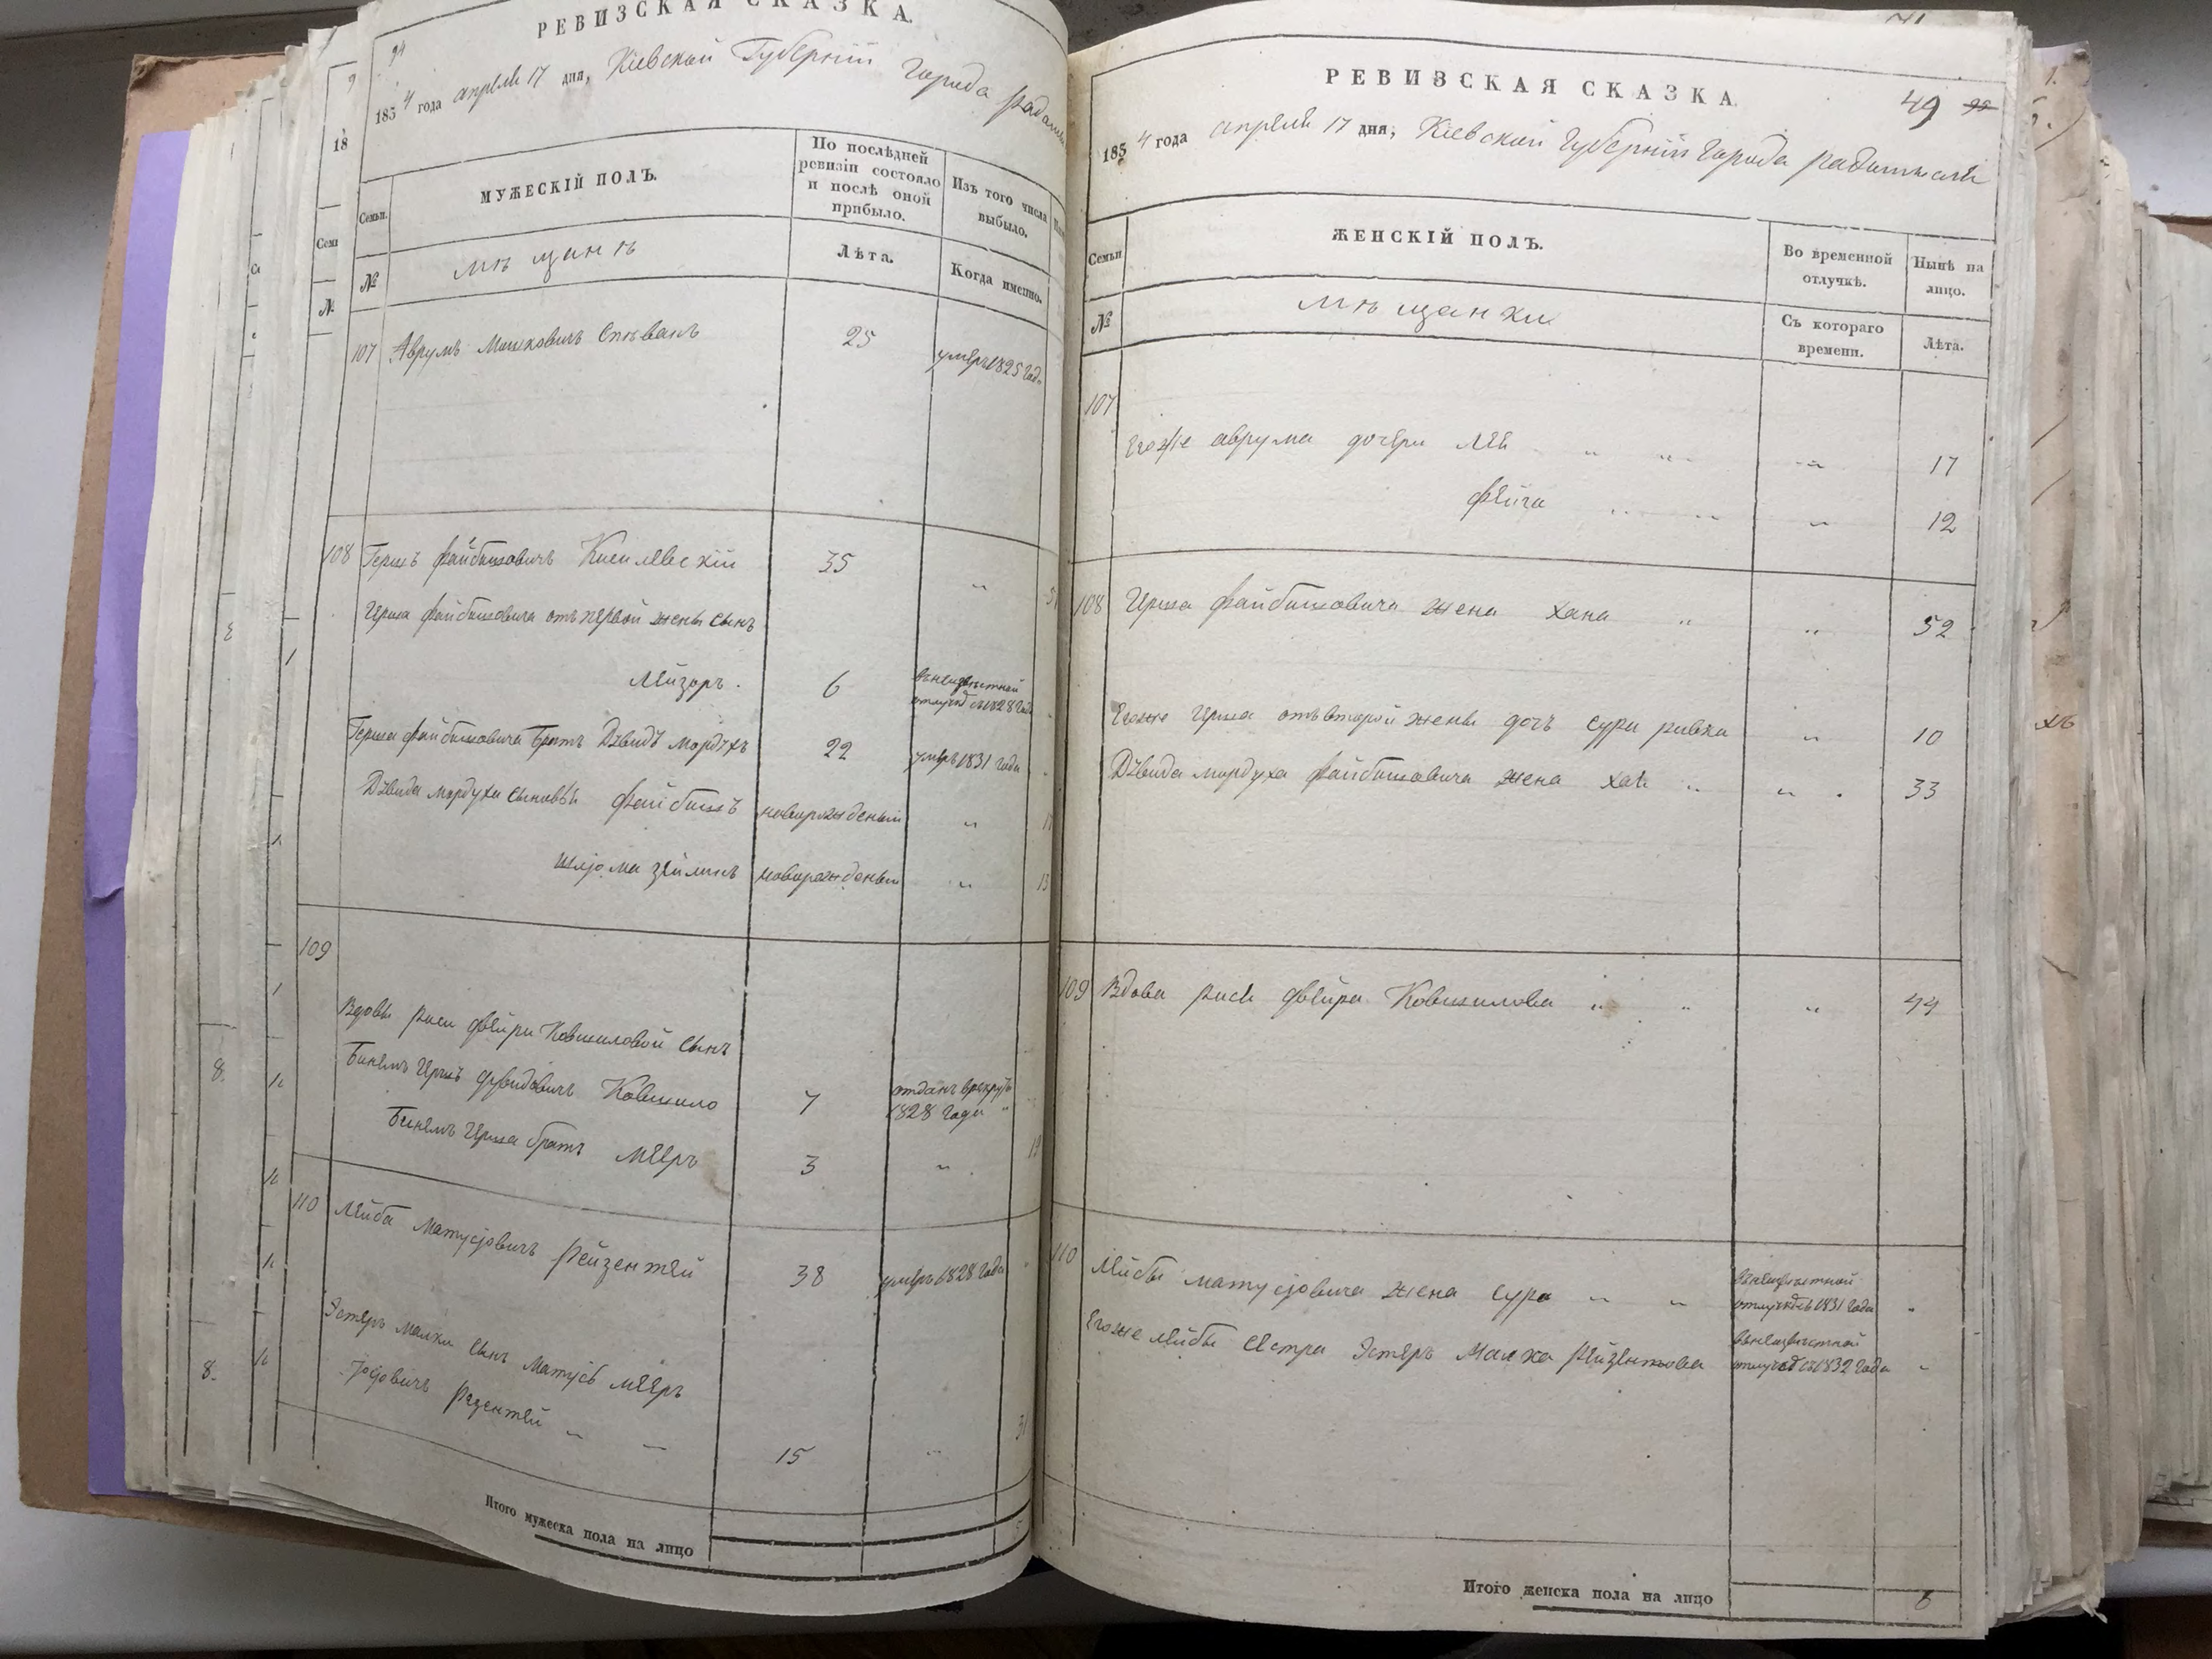 РЕВИЗСКАЯ СКАЗКА.
94
1854 года апреля 17 дня, Кіевской Губерніи города
Семьи.
МУЖЕСКІЙ ПОЛЪ.
По послѣдней ревизіи состояло и послѣ оной прибыло.
Изъ того числа выбыло.
№
мѣщанѣ
Лѣта.
Когда именно.
107 Аврумъ Мошковичъ Спѣвакъ 25 умеръ 1825 года
108 Гершъ Файбишовичъ Кисилевскій 35 "
Ирша Файбишовича отъ первой жены сынъ
Лейзоръ. 6 въ неизвѣстной отлучкѣ съ 1828 года
Герша Файбишовича братъ Дувидъ Мордухъ 22 умеръ 1831 года
Дувида Мордуха сыновья Файбишъ новорожденый "
Шлјома Зейликъ новорожденый " 13
109
Вдовы Раси Двейри Ковшиловой сынъ
Бинемъ Иршъ Дувидовичъ Ковшило 7 отданъ врекруты 1828 года "
Бинемъ Ирша братъ Мееръ 3 "
110 Лейба Матусјовичъ Рейзентей 38 умеръ 1828 года
Эстеръ Малки сынъ Матусь Мееръ
Резентей " " 15 "
Итого мужеска пола на лицо
РЕВИЗСКАЯ СКАЗКА.
49
1854 года апреля 17 дня, Кіевской Губерніи Города Радомысля
Семьи
ЖЕНСКІЙ ПОЛЪ.
Во временной отлучкѣ.
Нынѣ на лицо.
№
мѣщанки
Съ котораго времени.
Лѣта.
107
Егоже Аврума дочери Лея " " " 17
Фейга " " " 12
108 Ирша Файбишовича жена Хана " " 52
Егоже Ирша отъ второй жены дочъ Сура Ривка " 10
Дувида Мордуха Файбишовича жена Хая " " 33
109 Вдова Рися Двейра Ковшилова " " " 44
110 Лейбы Матусјовича жена Сура " " въ неизвѣстной отлучкѣ съ 1831 года "
Егоже Лейбы сестра Эстеръ Малка Рейзентова въ неизвѣстной отлучкѣ съ 1832 года "
Итого женска пола на лицо 6